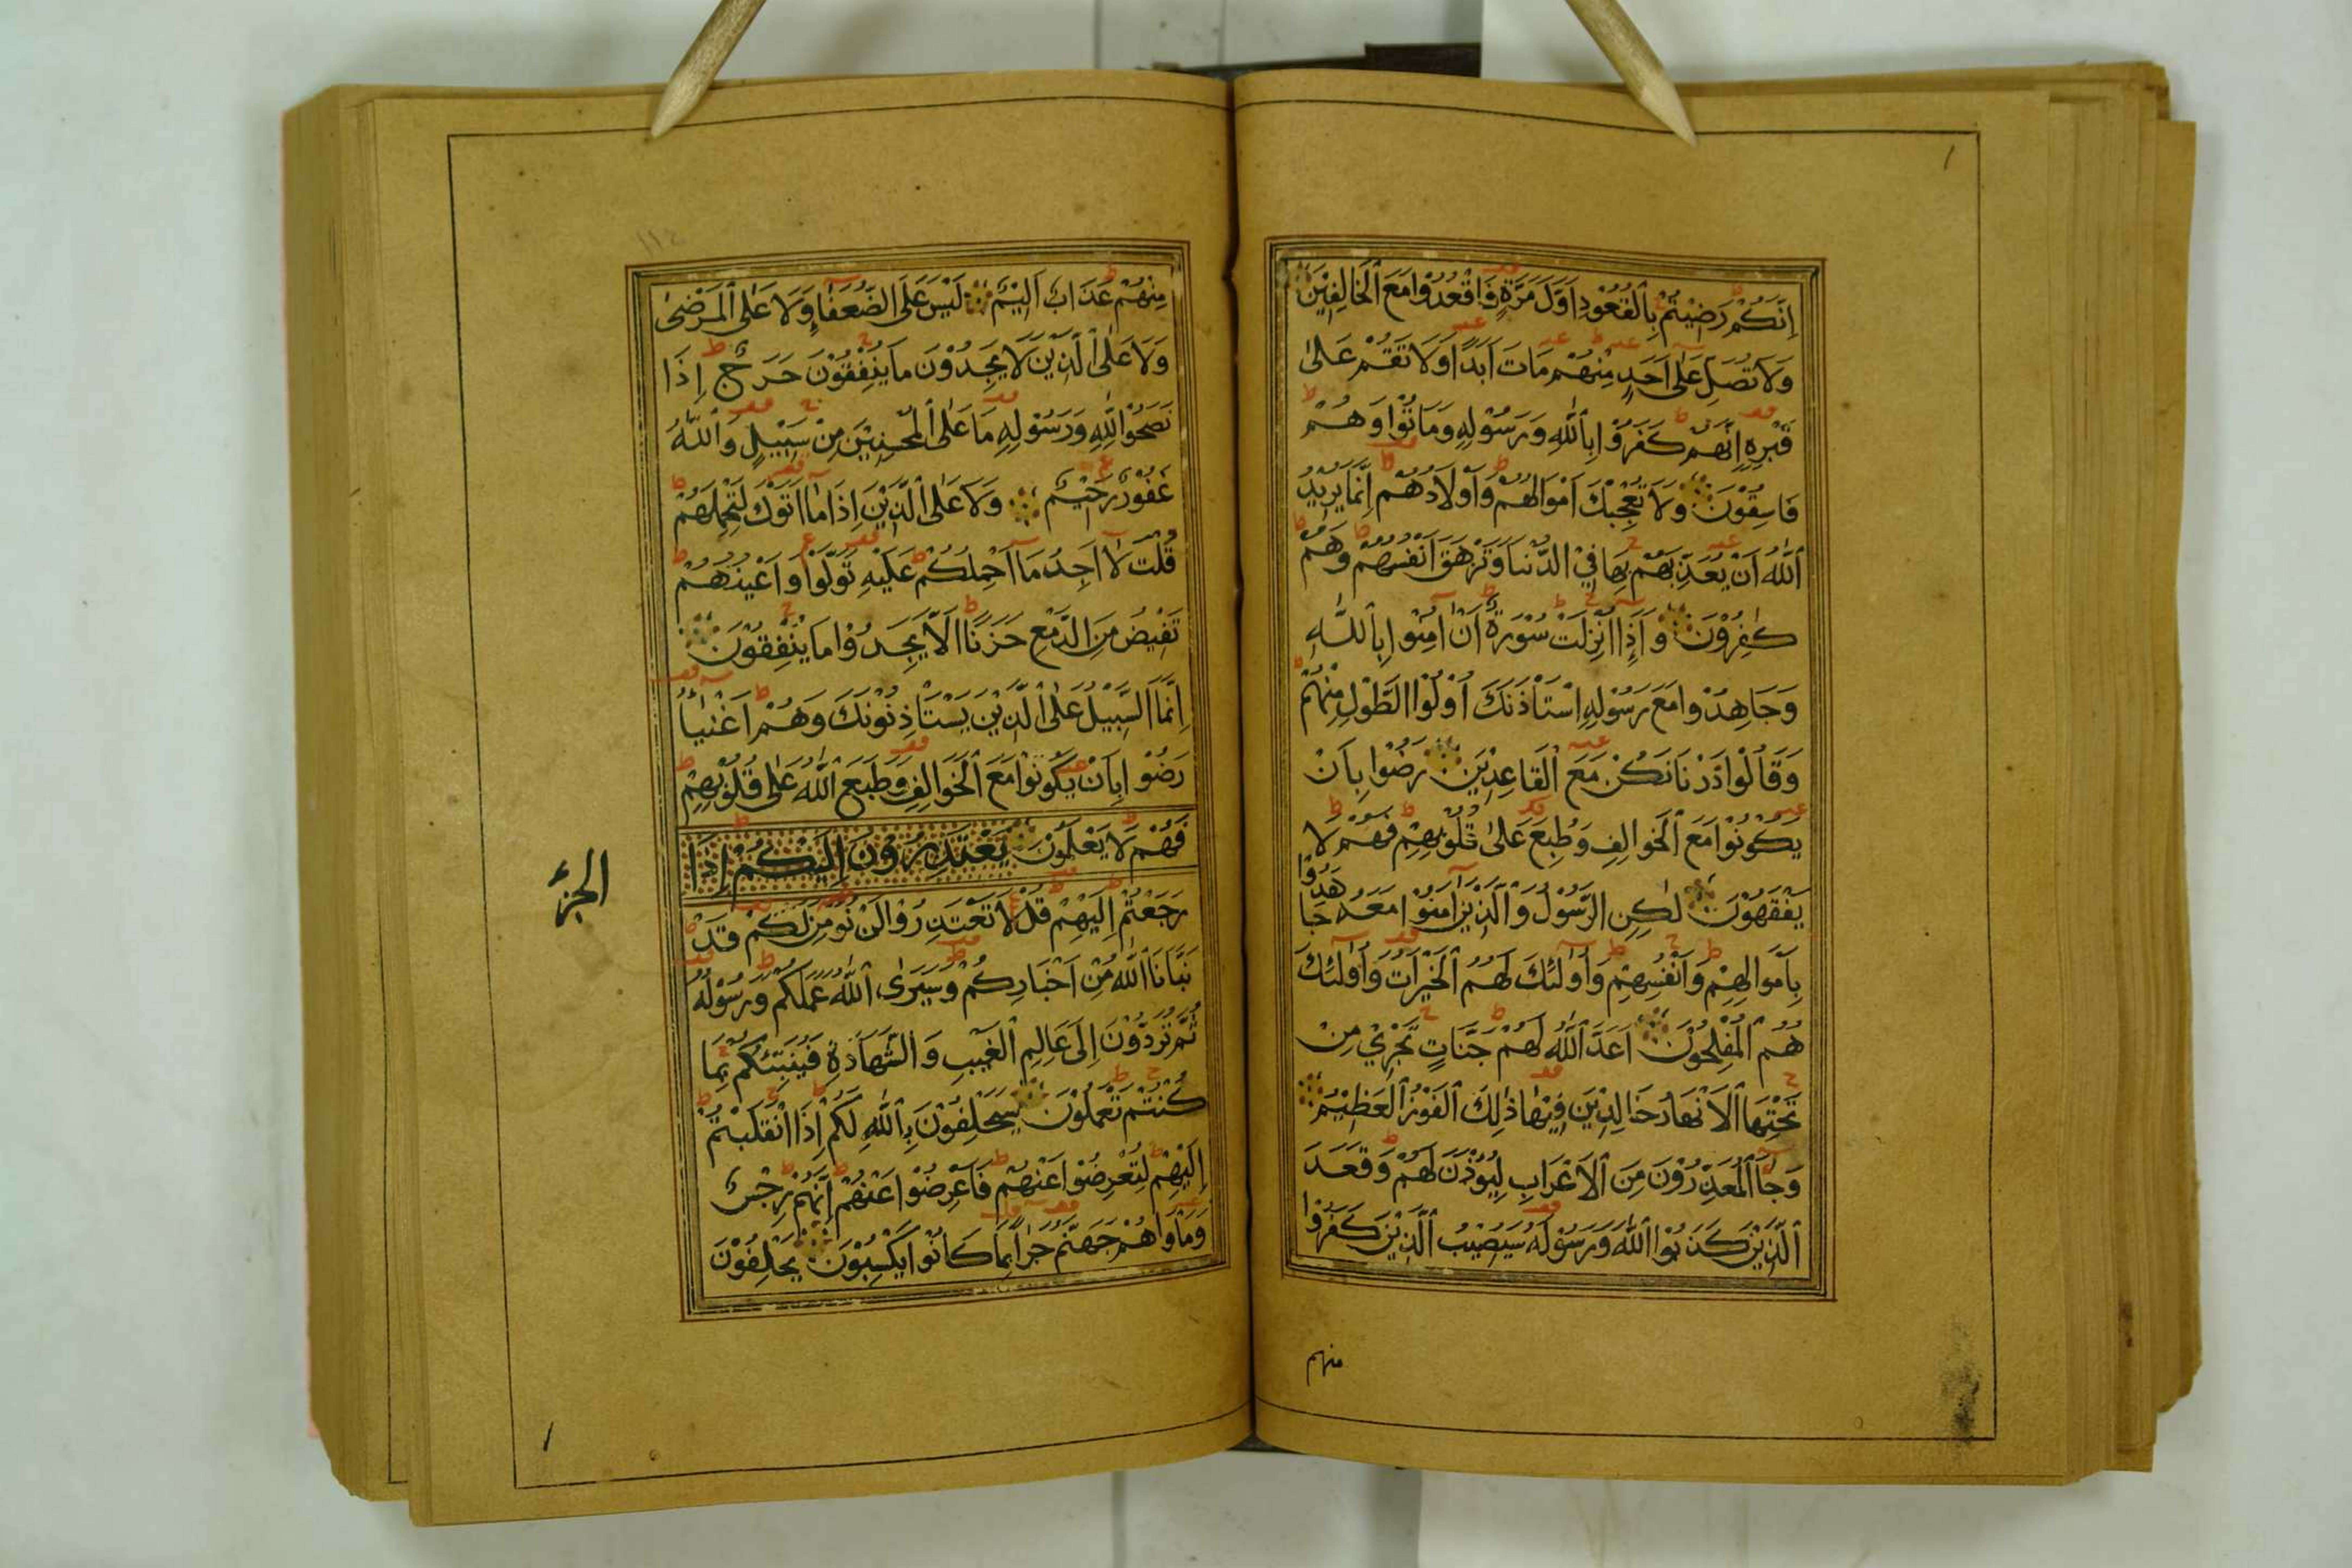 اِنَّكُمْ رَضِيْتُمْ بِالْقُعُوْدِ اَوَّلَ مَرَّةٍ فَاقْعُدُوْا مَعَ الْخَالِفِيْنَ
وَلَا تُصَلِّ عَلٰى اَحَدٍ مِّنْهُمْ مَاتَ اَبَدًا وَلَا تَقُمْ عَلٰى
قَبْرِهٖ اِنَّهُمْ كَفَرُوْا بِاللّٰهِ وَرَسُوْلِهٖ وَمَاتُوْا وَهُمْ
فَاسِقُوْنَ وَلَا تُعْجِبْكَ اَمْوَالُهُمْ وَاَوْلَادُهُمْ اِنَّمَا يُرِيْدُ
اللّٰهُ اَنْ يُعَذِّبَهُمْ بِهَا فِيْ الدُّنْيَا وَتَزْهَقَ اَنْفُسُهُمْ وَهُمْ
كٰفِرُوْنَ وَاِذَا اُنْزِلَتْ سُوْرَةٌ اَنْ اٰمِنُوْا بِاللّٰهِ
وَجَاهِدُوْا مَعَ رَسُوْلِهِ اسْتَاْذَنَكَ اُوْلُوْا الطَّوْلِ مِنْهُمْ
وَقَالُوْا ذَرْنَا نَكُنْ مَعَ الْقَاعِدِيْنَ رَضُوْا بِاَنْ
يَكُوْنُوْا مَعَ الْخَوَالِفِ وَطُبِعَ عَلٰى قُلُوْبِهِمْ فَهُمْ لَا
يَفْقَهُوْنَ لٰكِنِ الرَّسُوْلُ وَالَّذِيْنَ اٰمَنُوْا مَعَهٗ جَاهَدُوْا
بِاَمْوَالِهِمْ وَاَنْفُسِهِمْ وَاُولٰئِكَ لَهُمُ الْخَيْرَاتُ وَاُولٰئِكَ
هُمُ الْمُفْلِحُوْنَ اَعَدَّ اللّٰهُ لَهُمْ جَنَّاتٍ تَجْرِيْ مِنْ
تَحْتِهَا الْاَنْهَارُ خَالِدِيْنَ فِيْهَا ذٰلِكَ الْفَوْزُ الْعَظِيْمُ
وَجَاۤءَ الْمُعَذِّرُوْنَ مِنَ الْاَعْرَابِ لِيُؤْذَنَ لَهُمْ وَقَعَدَ
الَّذِيْنَ كَذَبُوْا اللّٰهَ وَرَسُوْلَهٗ سَيُصِيْبُ الَّذِيْنَ كَفَرُوْا
منهم
مِنْهُمْ عَذَابٌ اَلِيْمٌ لَيْسَ عَلَى الضُّعَفَاۤءِ وَلَا عَلَى الْمَرْضٰى
وَلَا عَلَى الَّذِيْنَ لَا يَجِدُوْنَ مَا يُنْفِقُوْنَ حَرَجٌ اِذَا
نَصَحُوْا لِلّٰهِ وَرَسُوْلِهٖ مَا عَلَى الْمُحْسِنِيْنَ مِنْ سَبِيْلٍ وَاللّٰهُ
غَفُوْرٌ رَحِيْمٌ وَلَا عَلَى الَّذِيْنَ اِذَا مَا اَتَوْكَ لِتَحْمِلَهُمْ
قُلْتَ لَا اَجِدُ مَا اَحْمِلُكُمْ عَلَيْهِ تَوَلَّوْا وَاَعْيُنُهُمْ
تَفِيْضُ مِنَ الدَّمْعِ حَزَنًا اَلَّا يَجِدُوْا مَا يُنْفِقُوْنَ
اِنَّمَا السَّبِيْلُ عَلَى الَّذِيْنَ يَسْتَاْذِنُوْنَكَ وَهُمْ اَغْنِيَاۤءُ
رَضُوْا بِاَنْ يَكُوْنُوْا مَعَ الْخَوَالِفِ وَطَبَعَ اللّٰهُ عَلٰى قُلُوْبِهِمْ
فَهُمْ لَا يَعْلَمُوْنَ يَعْتَذِرُوْنَ اِلَيْكُمْ اِذَا
الجزء
رَجَعْتُمْ اِلَيْهِمْ قُلْ لَا تَعْتَذِرُوْا لَنْ نُؤْمِنَ لَكُمْ قَدْ
نَبَّاَنَا اللّٰهُ مِنْ اَخْبَارِكُمْ وَسَيَرَى اللّٰهُ عَمَلَكُمْ وَرَسُوْلُهٗ
ثُمَّ تُرَدُّوْنَ اِلٰى عَالِمِ الْغَيْبِ وَالشَّهَادَةِ فَيُنَبِّئُكُمْ بِمَا
كُنْتُمْ تَعْمَلُوْنَ سَيَحْلِفُوْنَ بِاللّٰهِ لَكُمْ اِذَا انْقَلَبْتُمْ
اِلَيْهِمْ لِتُعْرِضُوْا عَنْهُمْ فَاَعْرِضُوْا عَنْهُمْ اِنَّهُمْ رِجْسٌ
وَمَاْوَاهُمْ جَهَنَّمُ جَزَاۤءً بِمَا كَانُوْا يَكْسِبُوْنَ يَحْلِفُوْنَ